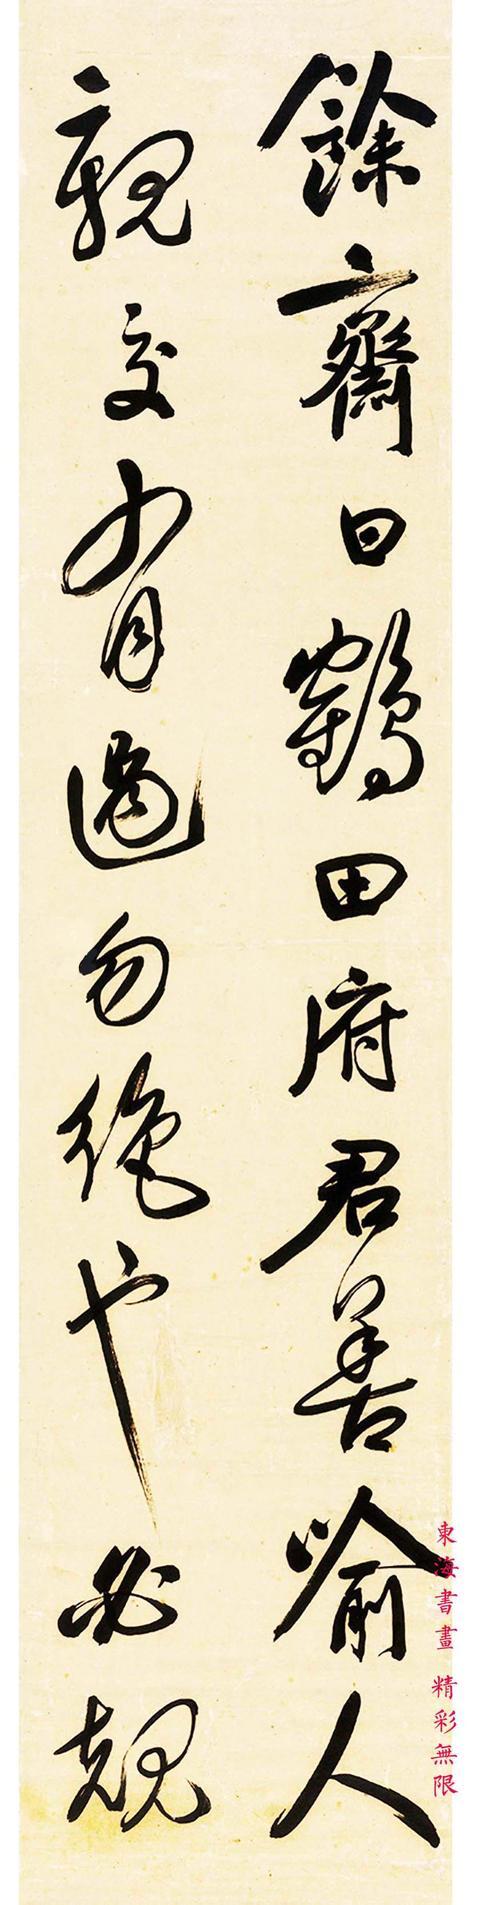 餘齋曰鶴田府君善喻人
親交有過勿絕也必規
東海書畫 精彩無限